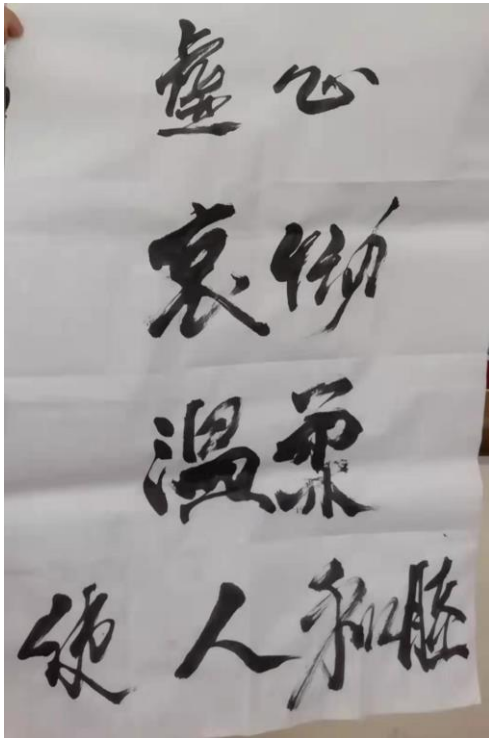 虚心
哀恸
温柔
使人和睦